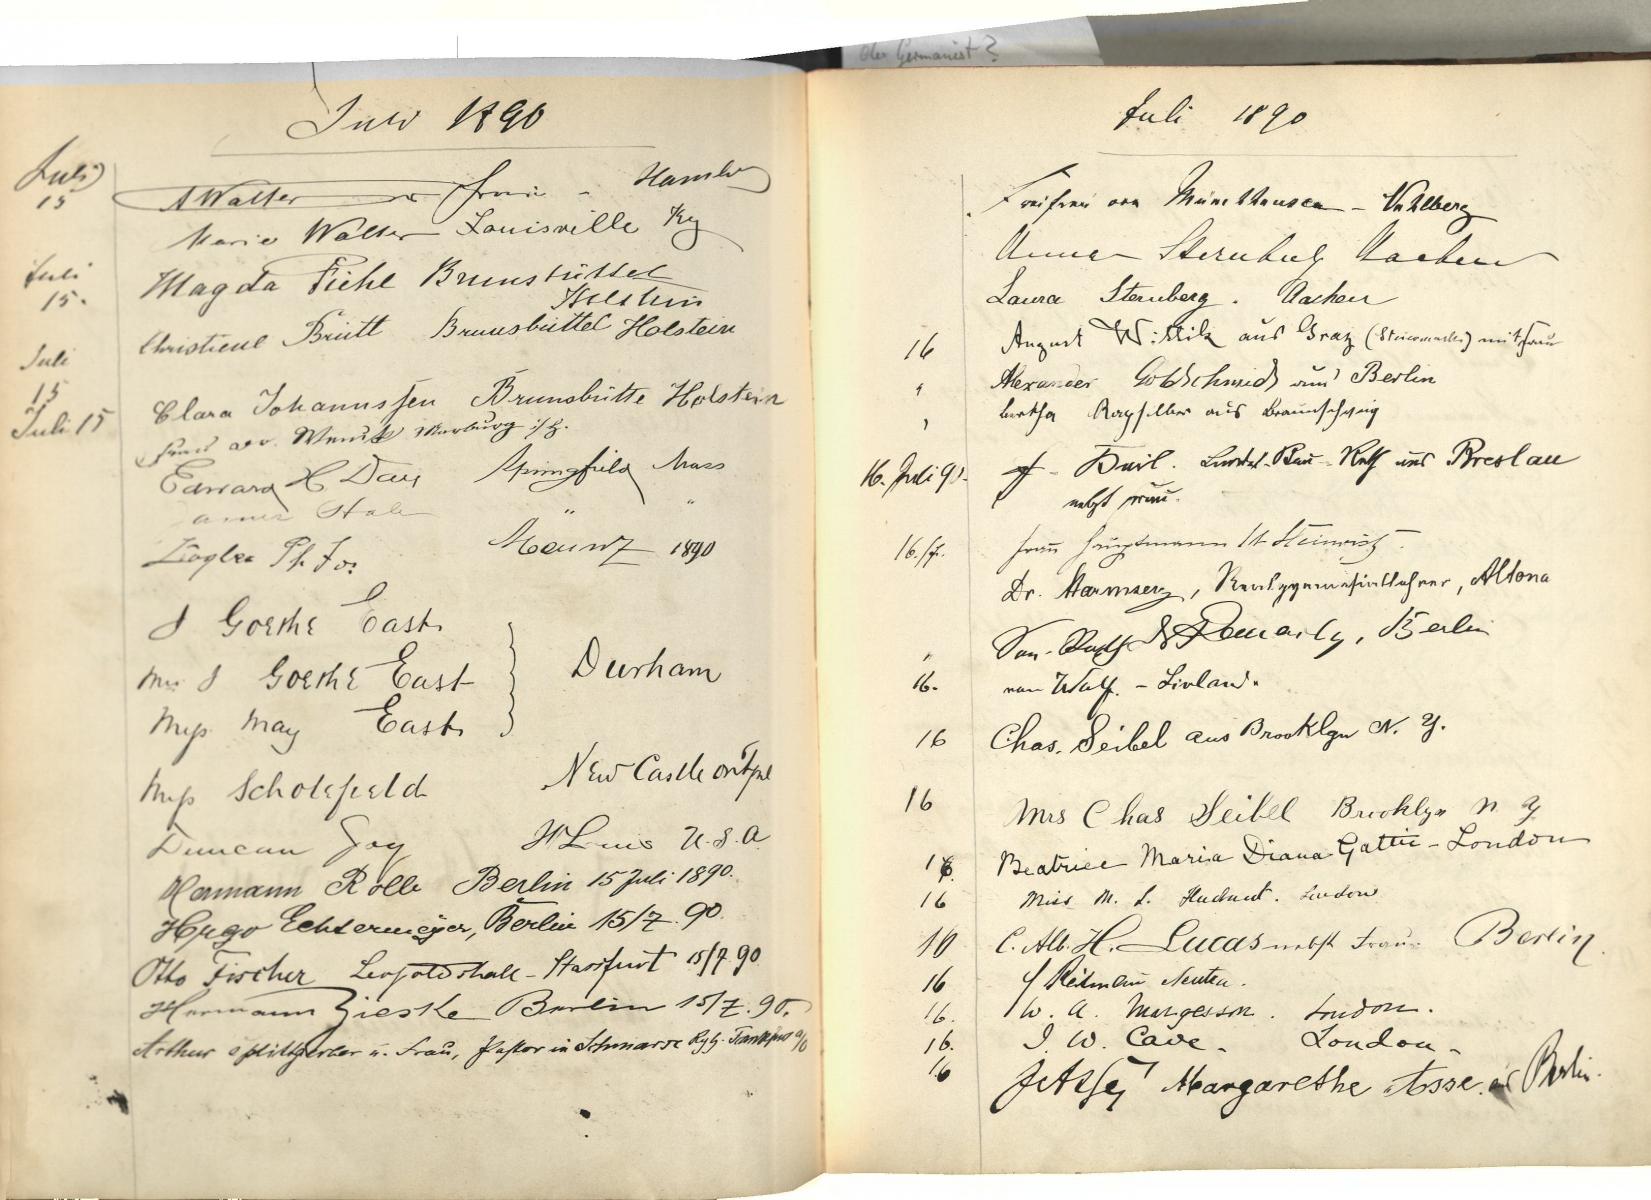 der Germanist?
Juli 1890
Juli
15
A Walter Frau - Hamb
Marie Walter Louisville Ky
Juli
15.
Magda Fiehl Brunsbüttel
Holstein
Christiene Brütt Brunsbüttel Holstein
Juli
15
Clara Johannssen Brunsbütte Holstein
Juli 15
Frau Marburg i/H.
Edward H Day Springfield Mass
James Hale " "
Ziegler Ph. Fr. Mainz 1890
J Goethe East
Mrs J Goethe East Durham
Miss May East
Miss Scholefield New Castle on Tyne
Duncan Joy St Louis U.S.A
Hermann Rolle Berlin 15 Juli 1890.
Hugo Echtermeyer, Berlin 15/7.90
Otto Fischer Leopoldshall - Stassfurt 15/7 90
Hermann Zieske Berlin 15/7.90.
Arthur Splittgerber u. Frau, Pastor in Schmarse Rgb. Frankfurt a/O
Juli 1890
Freifrau von Münchhausen - Vahlberg
Anna Sternberg Aachen
Laura Sternberg. Aachen
16 August aus Graz (Steiermark) mit Frau
" Alexander Goldschmidt aus Berlin
" Bertha aus Braunschweig
16. Juli 90. Landes-Bau-Rath aus Breslau
nebst Frau.
16./7. Frau Hauptmann
Dr. Harmsen, Realgymnasiallehrer, Altona
" San. Rath Berlin
16. von Wulf. - Livland.
16 Chas. Seibel aus Brooklyn N. Y.
16 Mrs Chas Seibel Brooklyn N Y
16. Beatrice Maria Diana Gattie - London
16 Miss M. L. London
16 C. Alb. H. Lucas nebst Frau Berlin.
16
16. W. A. Margesson. London.
16. J. W. Cave. London.
16 Margarethe Asse. aus Berlin.